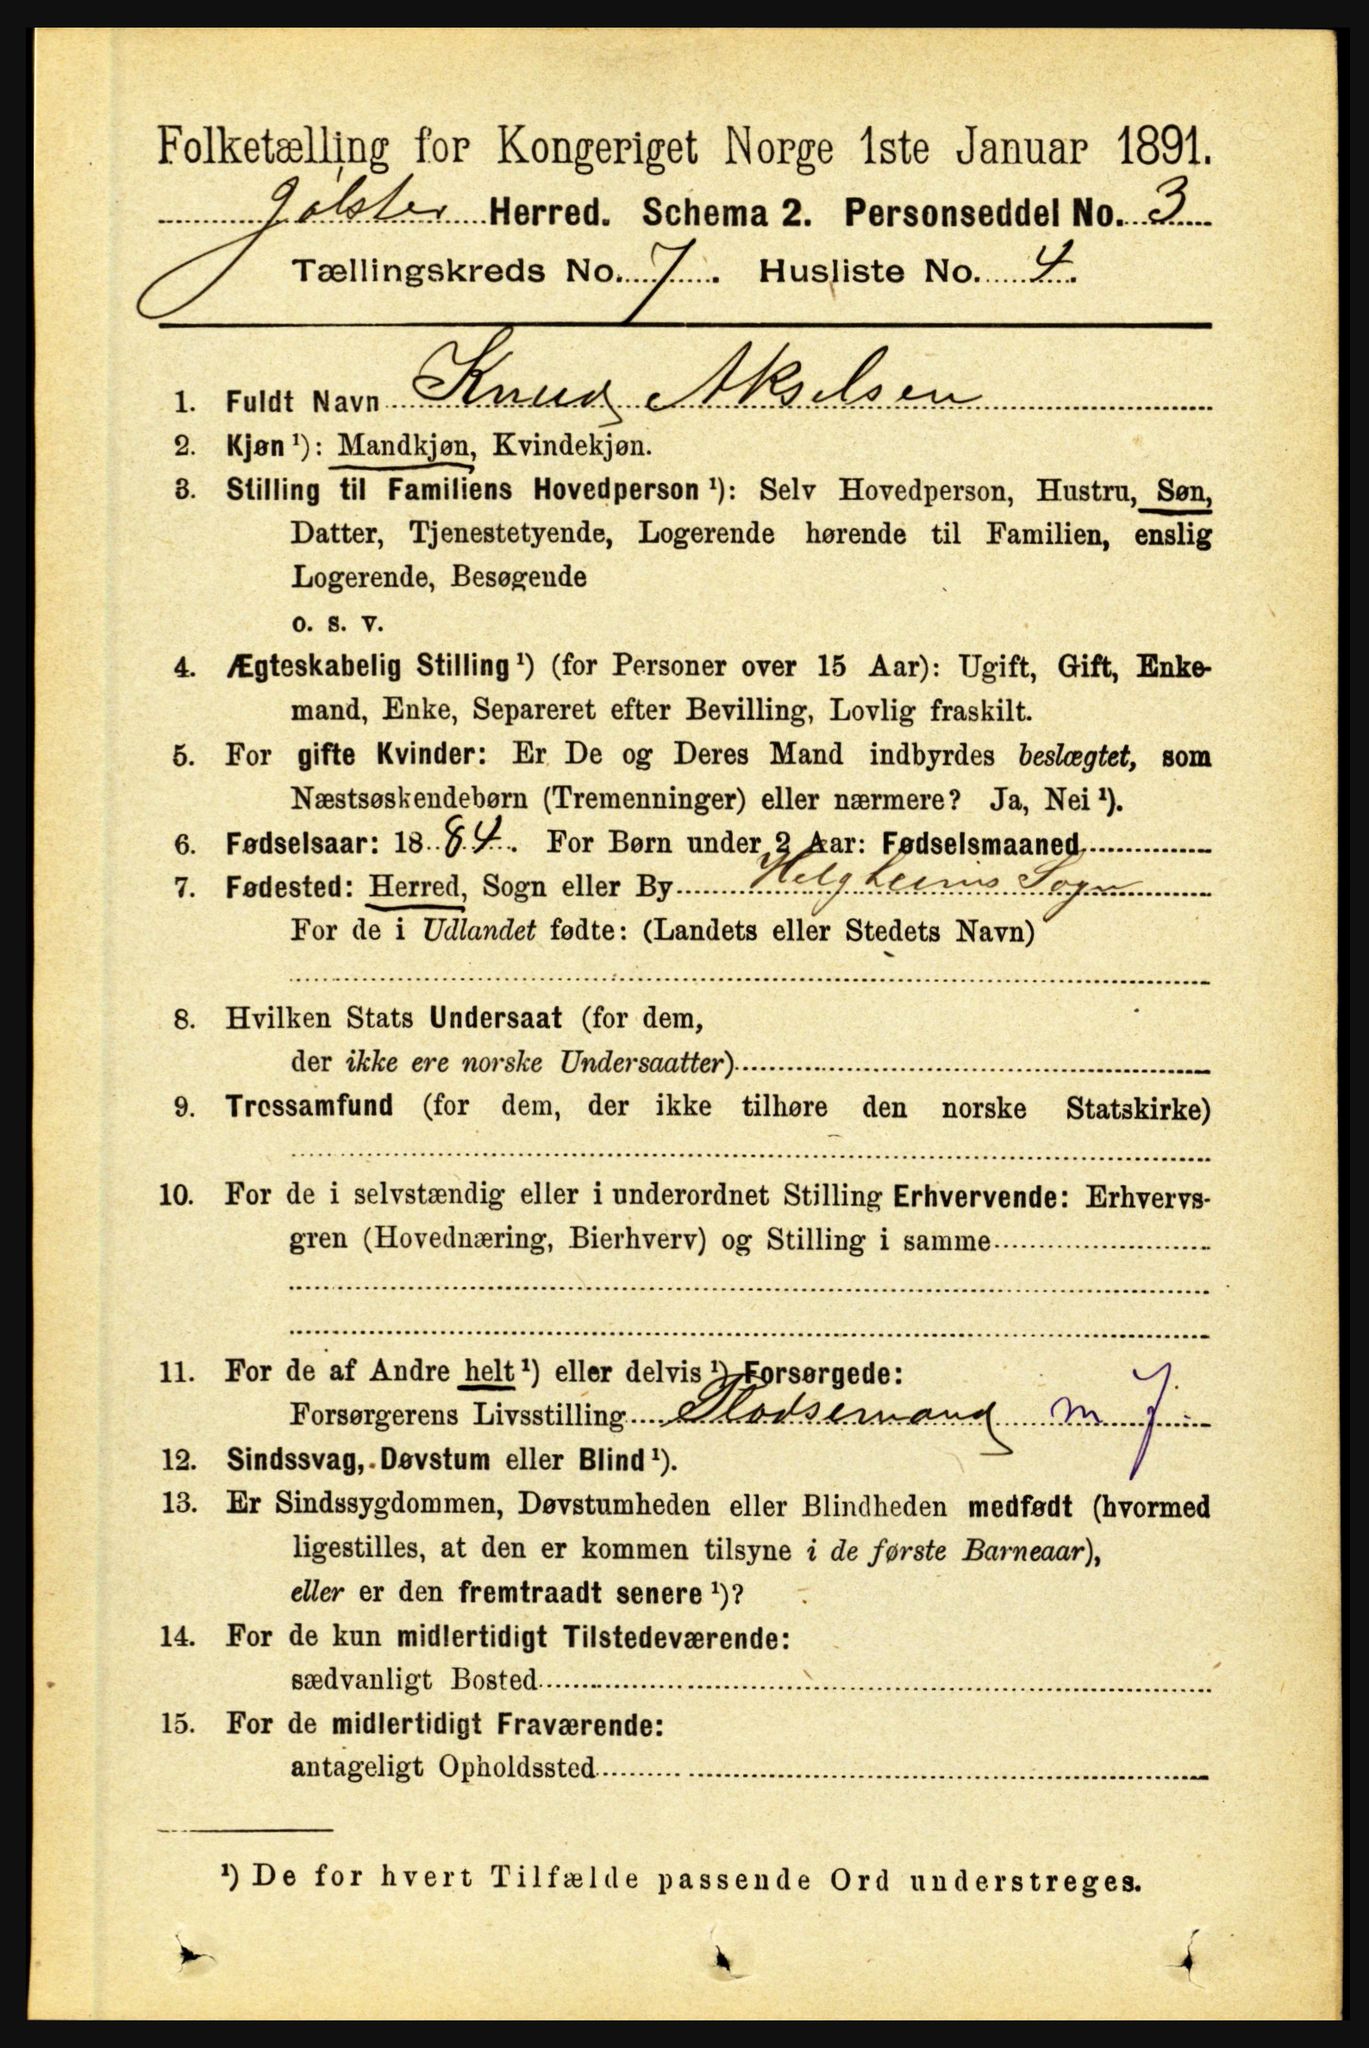 Folketælling for Kongeriget Norge 1ste Januar 1891.
Jølster Herred. Schema 2. Personseddel No. 3
Tællingskreds No. 7. Husliste No. 4.
1. Fuldt Navn Knud Akselsen
2. Kjøn ¹): Mandkjøn, Kvindekjøn.
3. Stilling til Familiens Hovedperson ¹): Selv Hovedperson, Hustru, Søn,
Datter, Tjenestetyende, Logerende hørende til Familien, enslig
Logerende, Besøgende
o. s. v.
4. Ægteskabelig Stilling ¹) (for Personer over 15 Aar): Ugift, Gift, Enke-
mand, Enke, Separeret efter Bevilling, Lovlig fraskilt.
5. For gifte Kvinder: Er De og Deres Mand indbyrdes beslægtet, som
Næstsøskendebørn (Tremenninger) eller nærmere? Ja, Nei ¹).
6. Fødselsaar: 1884. For Børn under 2 Aar: Fødselsmaaned
7. Fødested: Herred, Sogn eller By Helgheims Sogn
For de i Udlandet fødte: (Landets eller Stedets Navn)
8. Hvilken Stats Undersaat (for dem,
der ikke ere norske Undersaatter)
9. Trossamfund (for dem, der ikke tilhøre den norske Statskirke)
10. For de i selvstændig eller i underordnet Stilling Erhvervende: Erhvervs-
gren (Hovednæring, Bierhverv) og Stilling i samme
11. For de af Andre helt ¹) eller delvis ¹) Forsørgede:
Forsørgerens Livsstilling Pladsemand m J.
12. Sindssvag, Døvstum eller Blind ¹).
13. Er Sindssygdommen, Døvstumheden eller Blindheden medfødt (hvormed
ligestilles, at den er kommen tilsyne i de første Barneaar),
eller er den fremtraadt senere ¹)?
14. For de kun midlertidigt Tilstedeværende:
sædvanligt Bosted
15. For de midlertidigt Fraværende:
antageligt Opholdssted
¹) De for hvert Tilfælde passende Ord understreges.